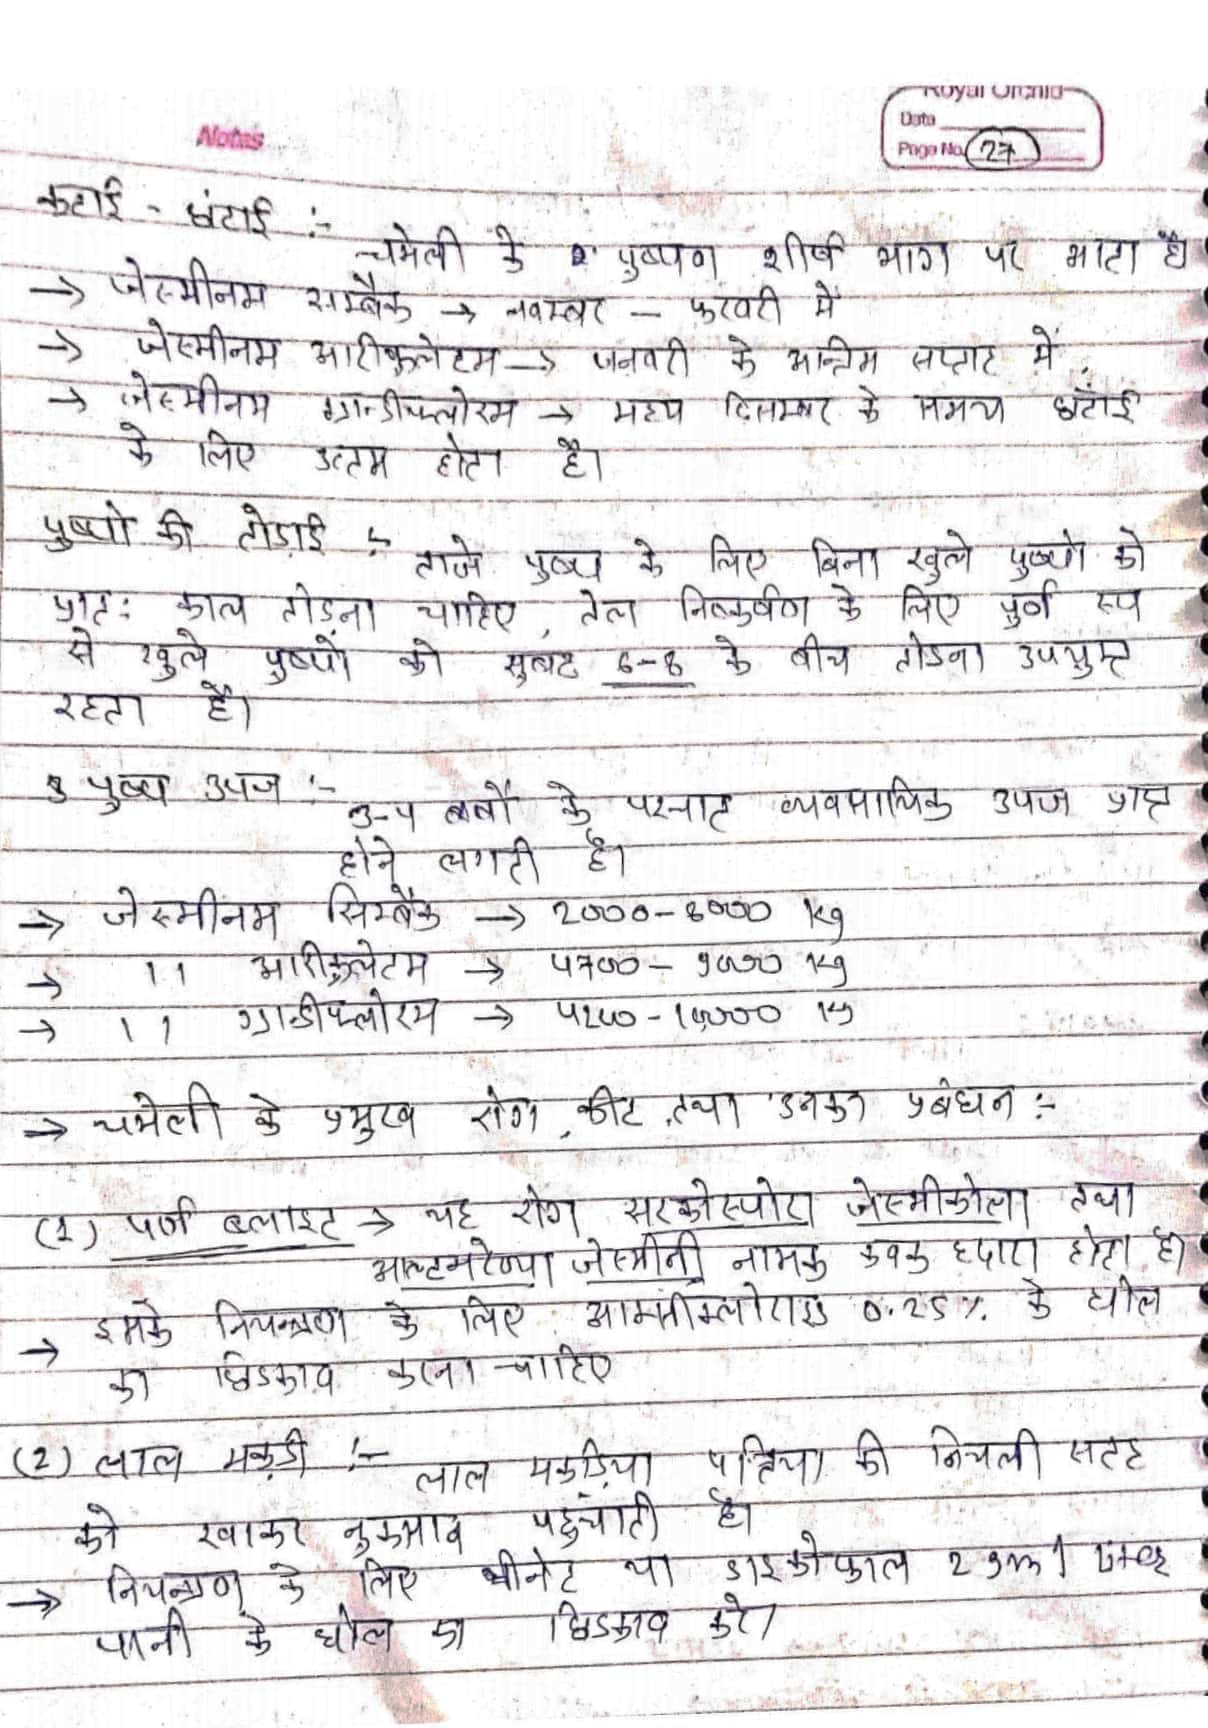 Royal Orchid
Notes
Date
Page No. 27
कटाई - छंटाई :-
चमेली के पुष्पण शीर्ष भाग पर आता है
→ जेस्मीनम सम्बैक → नवम्बर - फरवरी में
→ जेस्मीनम आरीकुलेटम → जनवरी के अन्तिम सप्ताह में,
→ जेस्मीनम ग्रान्डीफ्लोरम → मध्य दिसम्बर के समय छँटाई
के लिए उत्तम होता है।
पुष्पो की तोड़ाई :-
ताजे पुष्प के लिए बिना खुले पुष्पो को
प्रातः काल तोड़ना चाहिए, तेल निष्कर्षण के लिए पुर्ण रूप
से खुले पुष्पों को सुबह 6-8 के बीच तोडना उपयुक्त
रहता है।
पुष्प उपज :-
3-4 वर्षो के पश्चात व्यवसायिक उपज प्राप्त
होने लगती है।
→ जेस्मीनम सिम्बैक → 2000-8000 Kg
→ 11 आरीकुलेटम → 4700 - 9000 Kg
→ 11 ग्रान्डीफ्लोरम → - 10,000 Kg
→ चमेली के प्रमुख रोग, कीट, तथा उनका प्रबंधन :-
(1) पर्ण ब्लाइट → यह रोग सरकोस्पोरा जेस्मीकोला तथा
आल्टमरेन्या जेस्मीनी नामक कवक द्वारा होता है।
→ इसके नियन्त्रण के लिए 0.25% के घोल
का छिडकाव करना चाहिए
(2) लाल मकड़ी :- लाल मकड़िया पत्तिया की निचली सतह
को खाकर नुकसान पहुचाती है।
→ नियन्त्रण के लिए या डाइकोफाल 2 gm / liter
पानी के घोल का छिडकाव करे।